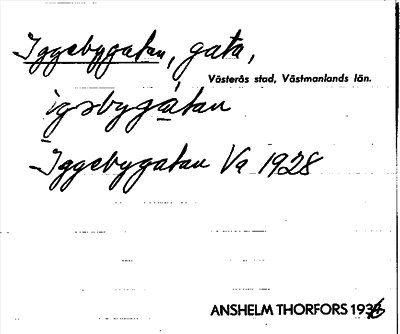 Iggebygatan, gata,
Västerås stad, Västmanlands län.
igəbygatan
Iggebygatan Va 1928
ANSHELM THORFORS 1936